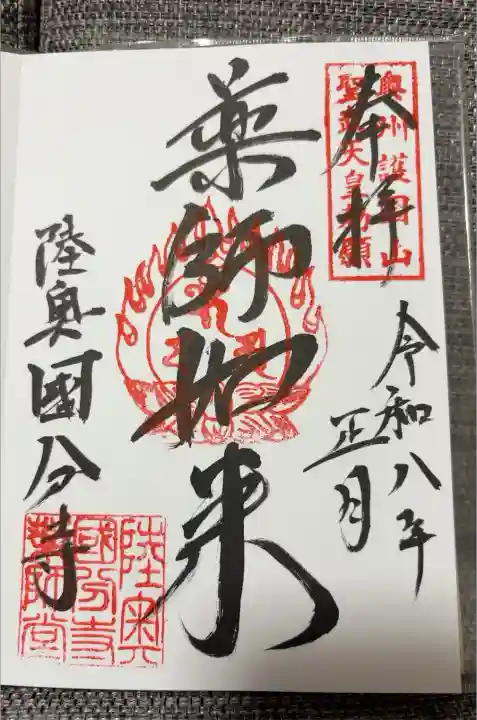 奉拝
奥州護国山
聖武天皇勅願
令和八年
正月
薬師如来
陸奥國分寺
陸奥
國分寺
薬師堂